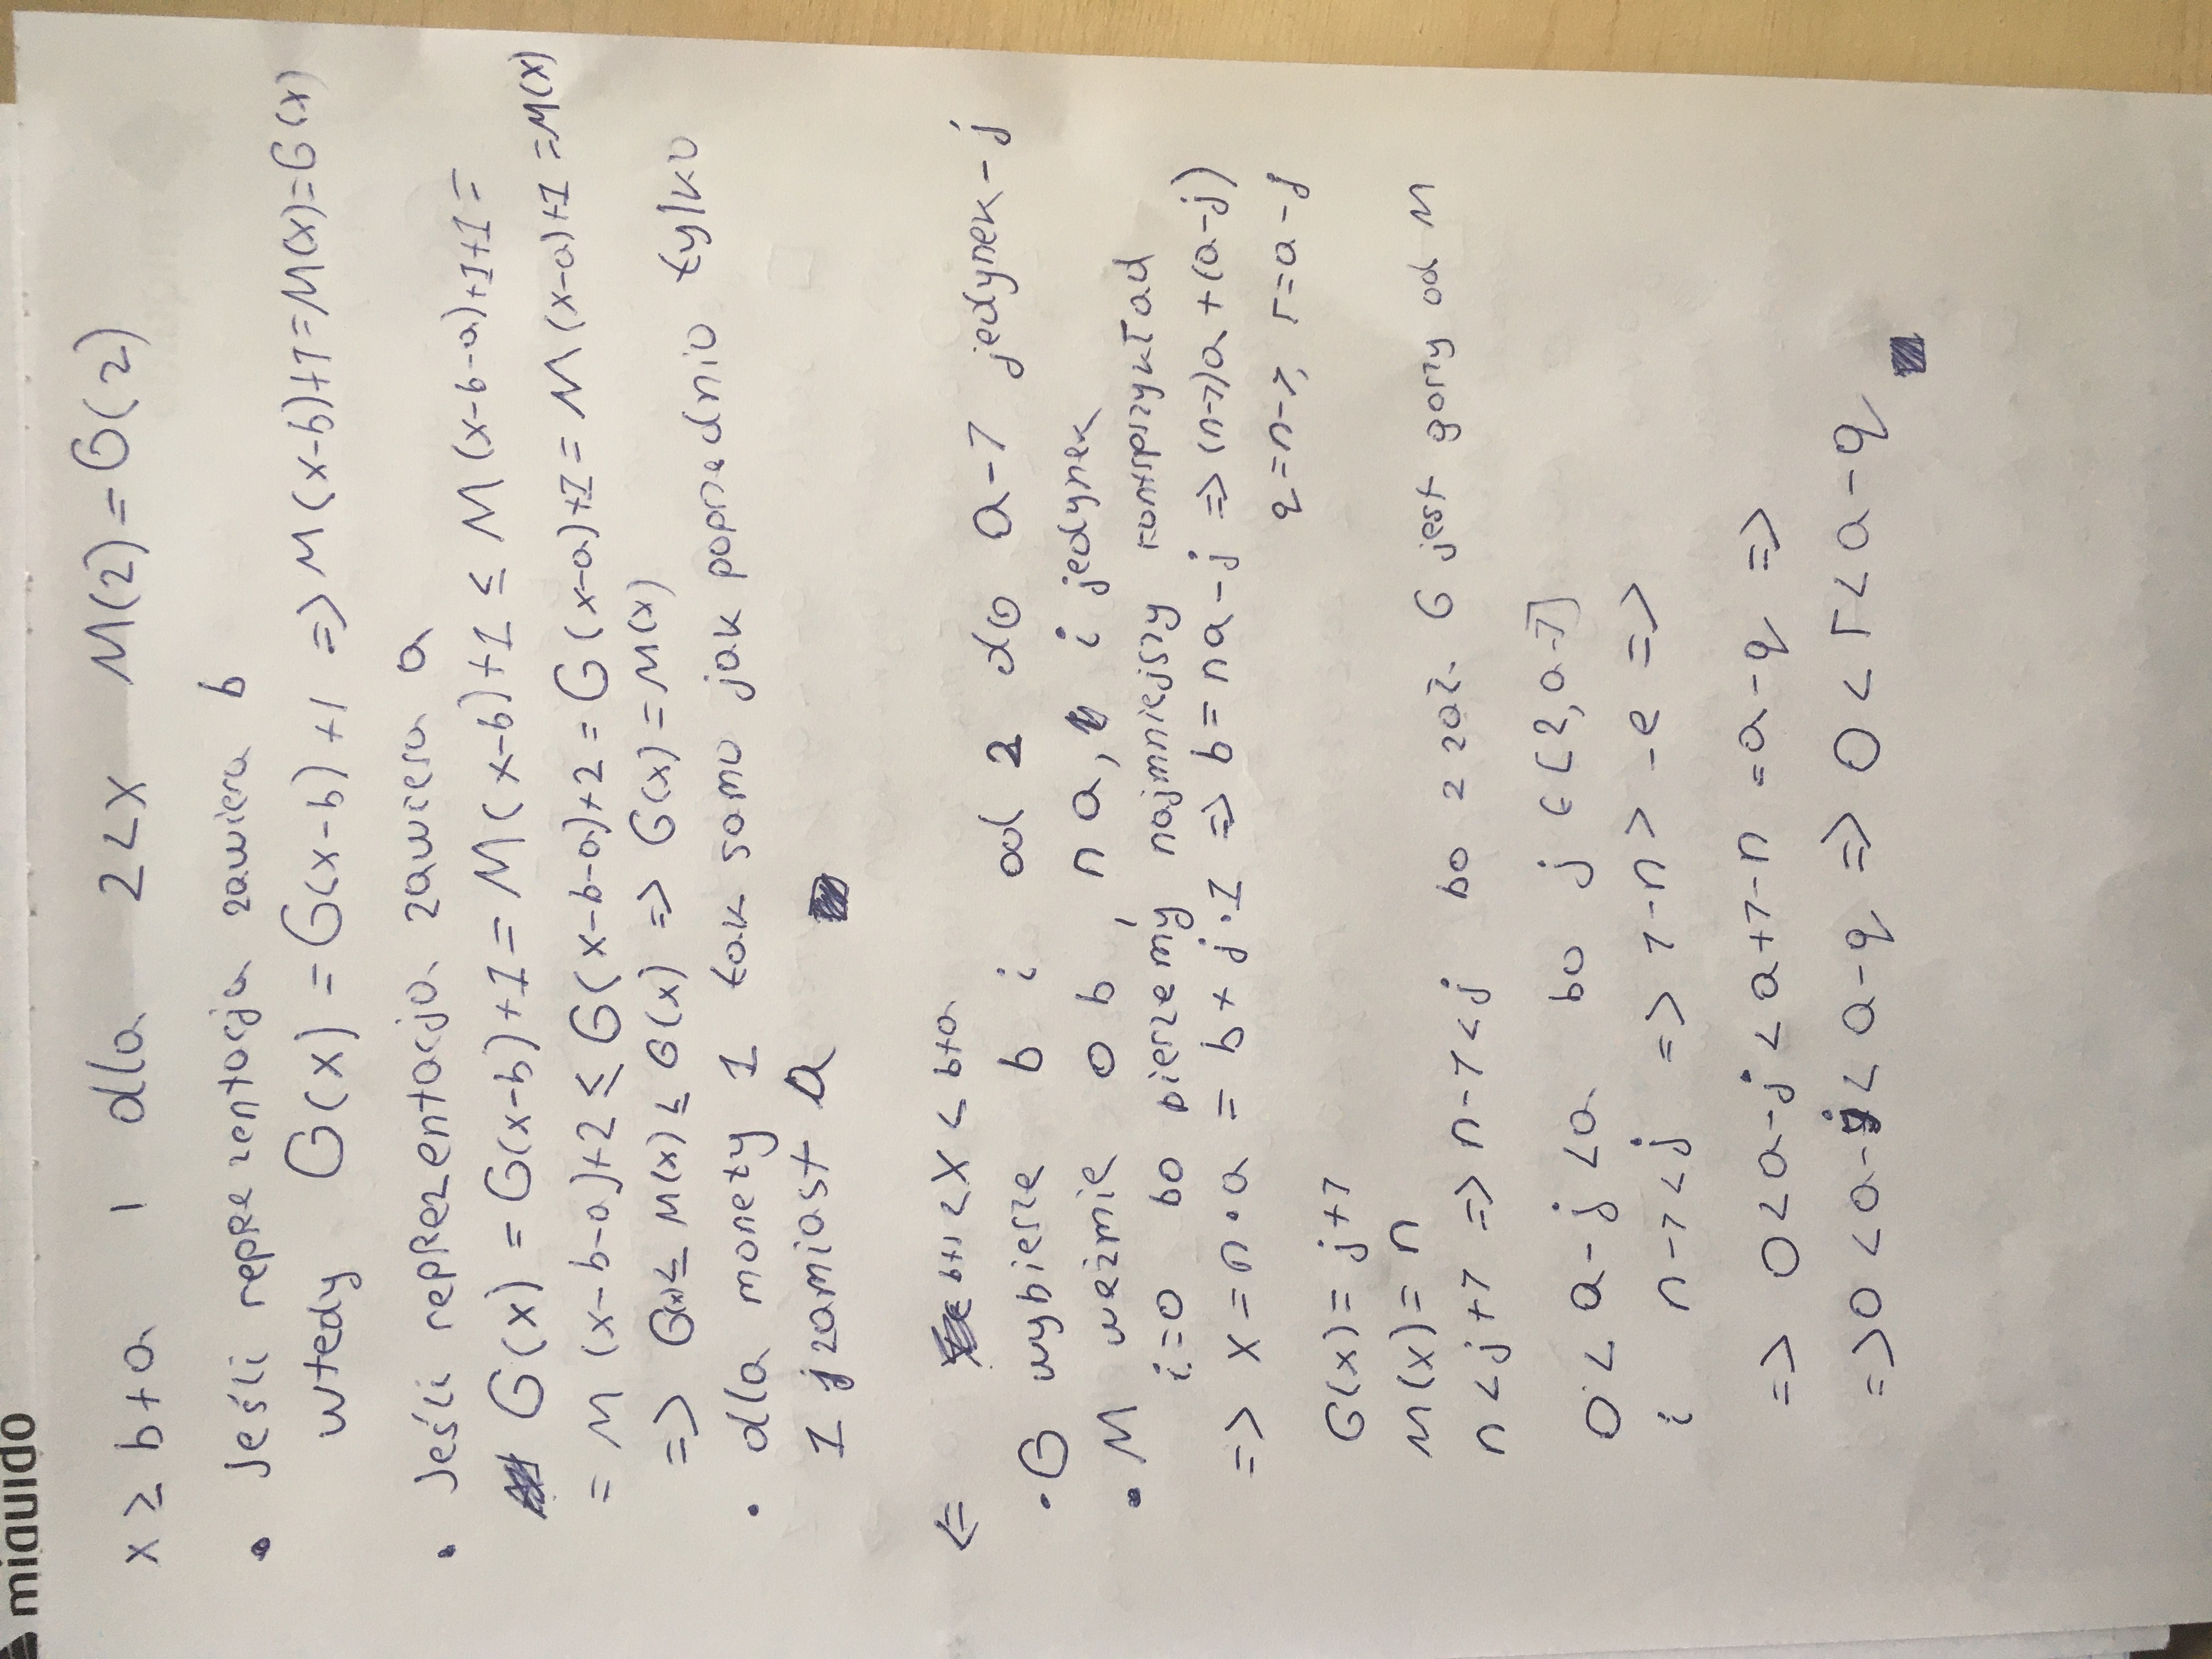 miquido
x ≥ b+a 1 dla z<x M(z)=G(z)
• Jeśli reprezentacja zawiera b
wtedy G(x) = G(x-b)+1 => M(x-b)+1=M(x)=G(x)
• Jeśli reprezentacja zawiera a
G(x) = G(x-b)+1 = M(x-b)+1 ≤ M(x-b-a)+1+1 =
= M(x-b-a)+2 ≤ G(x-b-a)+2 = G(x-a)+1 = M(x-a)+1 = M(x)
=> G(x) ≤ M(x) ≤ G(x) => G(x) = M(x)
• dla monety 1 tak samo jak poprzednio tylko
1 zamiast a
<= b+1 < x < b+a
• G wybierze b i od 2 do a-1 jedynek - j
• M weźmie 0 b, n a, i jedynek
i=0 bo bierzemy najmniejszy kontrprzykład
=> x = n•a = b + j•1 => b = na-j => (n-1)a + (a-j)
q=n-1, r=a-j
G(x) = j+1
M(x) = n
n < j+1 => n-1 < j bo z zał. G jest gorszy od M
0 < a-j < a bo j ∈ [2,a-1]
i n-1 < j => 1-n > -e =>
=> 0 < a-j < a+1-n = a-q =>
=> 0 < a-j < a-q => 0 < r < a-q